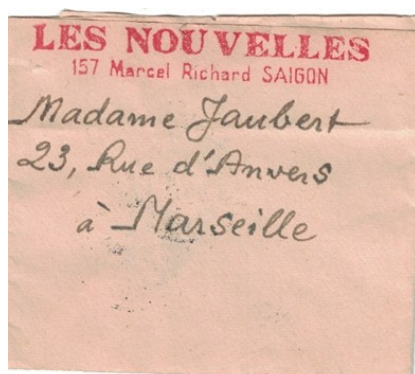 LES NOUVELLES
157 Marcel Richard SAIGON
Madame Jaubert
23, Rue d'Anvers
à Marseille